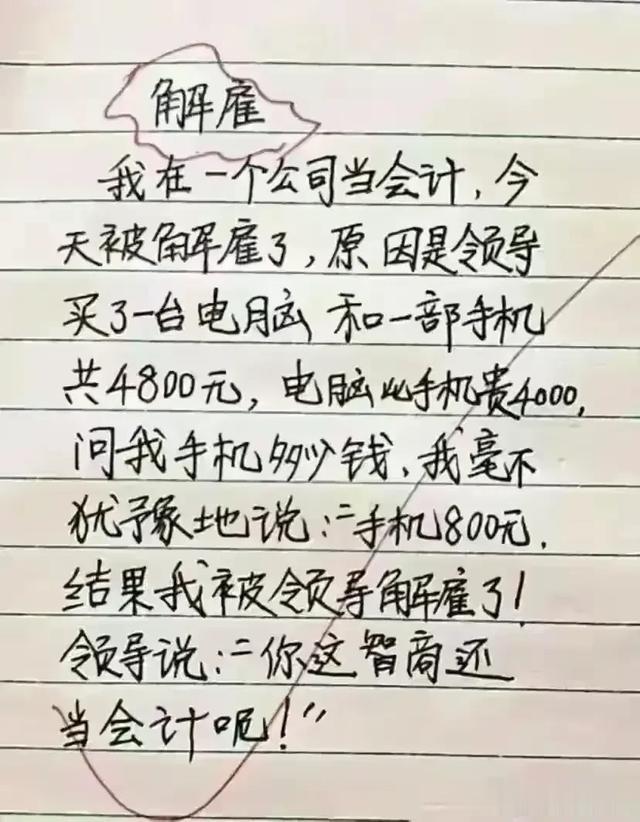 解雇
我在一个公司当会计,今
天被解雇了,原因是领导
买了一台电脑和一部手机
共4800元,电脑比手机贵4000,
问我手机多少钱、我毫不
犹豫地说:"手机800元.
结果我被领导解雇了!
领导说:"你这智商还
当会计呢!"